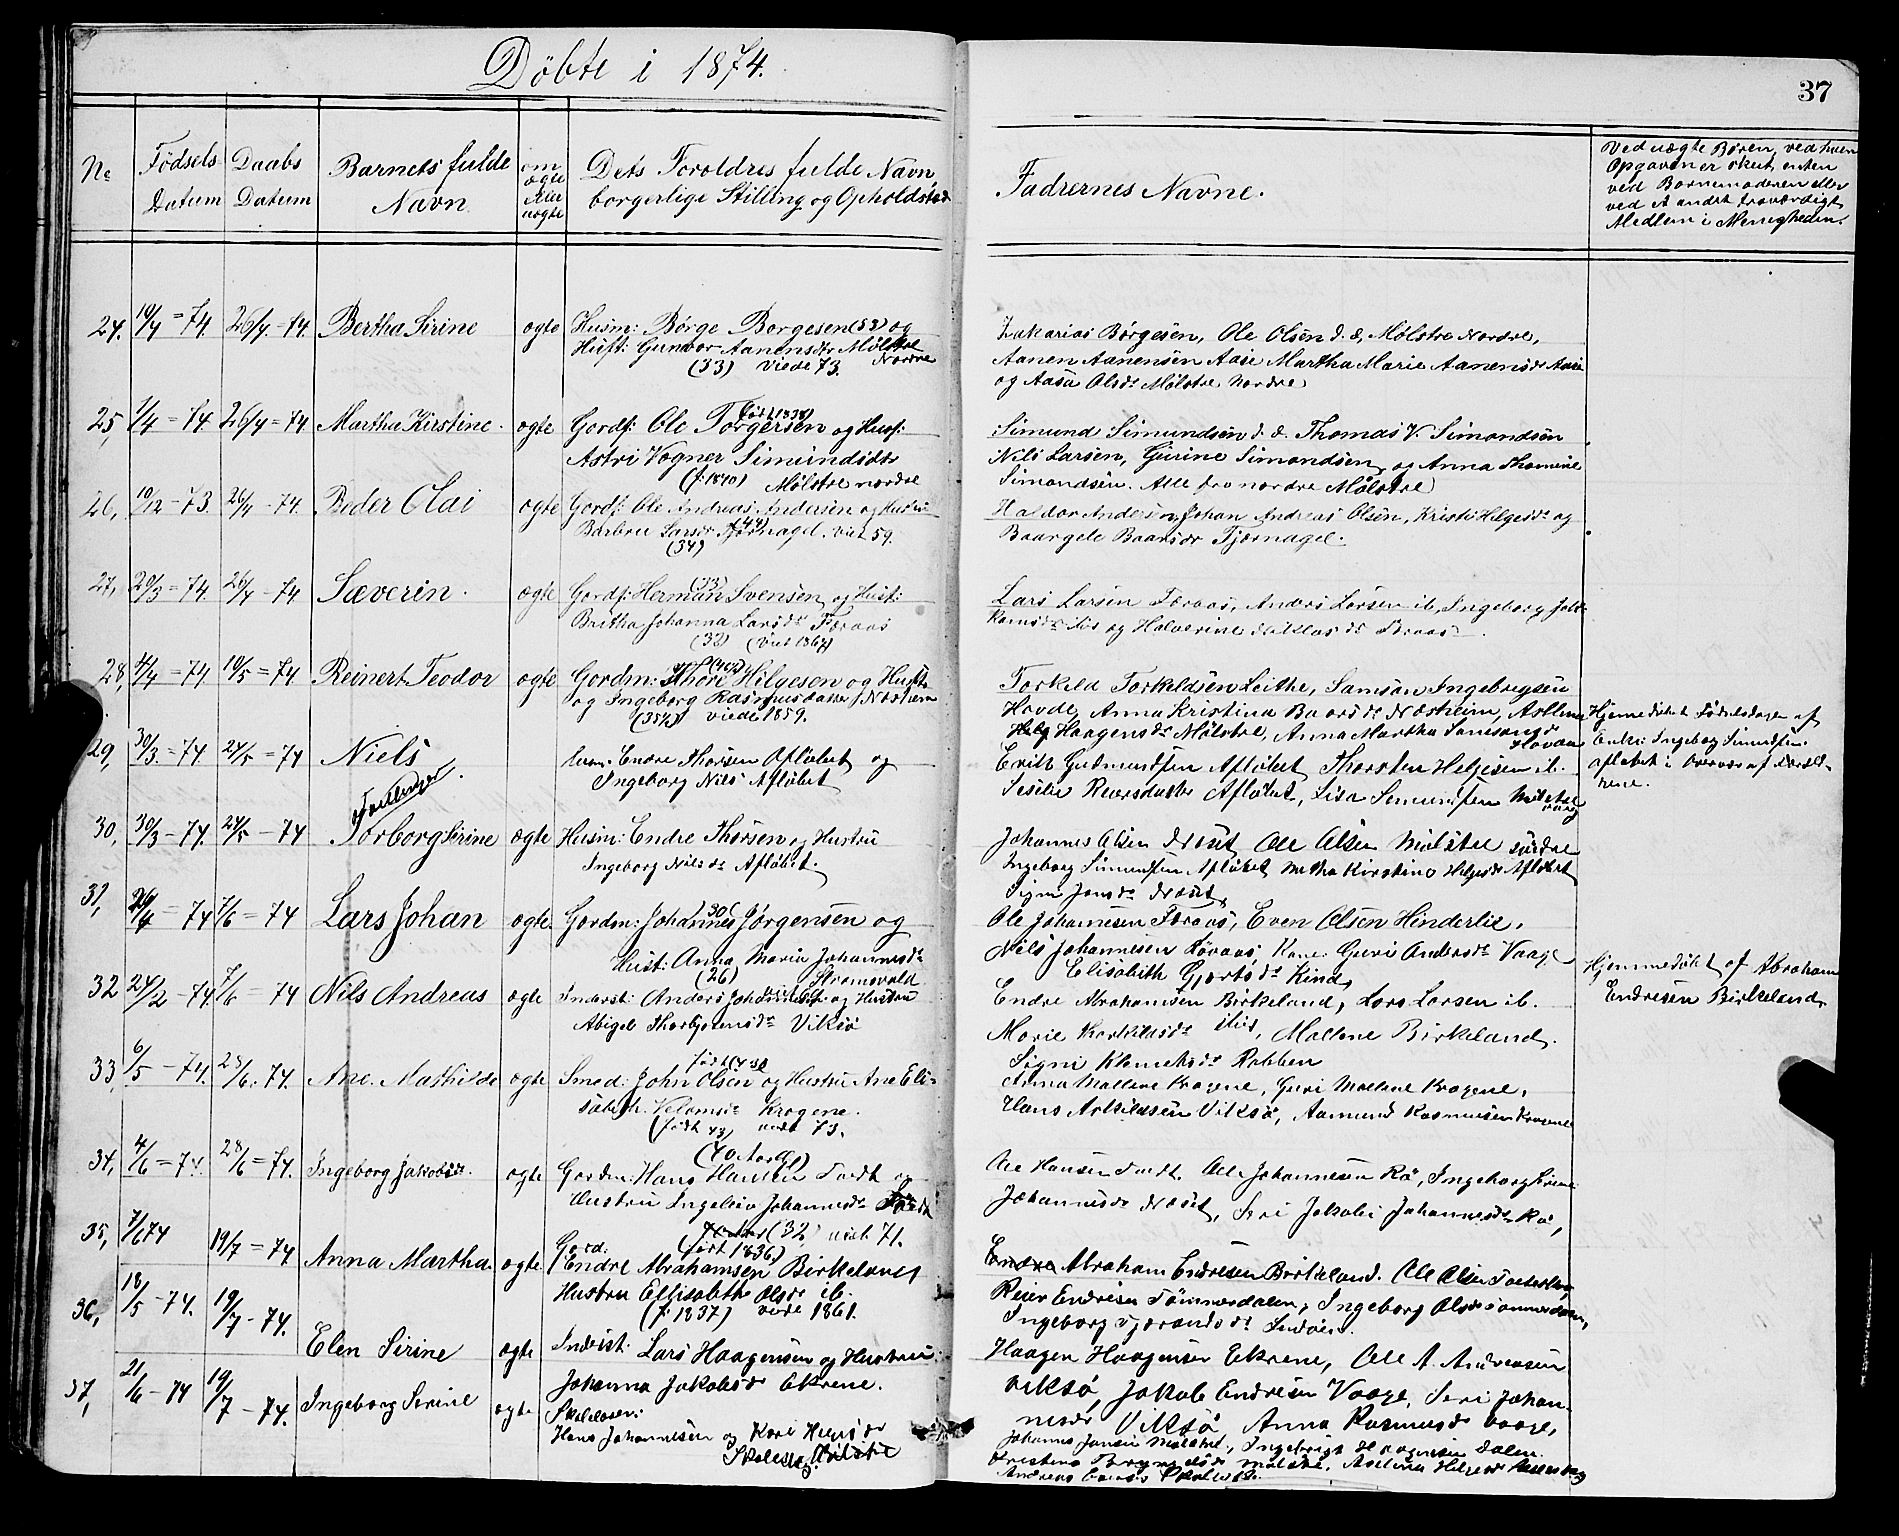 Döbte i 1874.
37
No
Fødsels Datum
Daabs Datum
Barnets fulde Navn
om ægte eller uægte
Dets Foroldres fulde Navn
borgerlige Stilling og Opholdsted
Fadrernes Navne.
Ved uægte Børen, ved hvem
Opgaven er skeet, enten
ved Barnemoderen eller
ved et andet troværdigt
Medlem i Menigheden.
24. 10/4 = 74. 26/4 = 74. Bertha Sirine ogte Husm: Børge Borgesen (53) og
Huft: Gunvor Aanensdtr Mølstre Nordre
(33) viede 73.
Zakarias Börgesen, Ole Olsen d. e, Mølstre Nordre,
Aanen Aanensen Aase Martha Marie Aanensdr Aase
og Aasa Olsdr Mölstre Nordre
25, 1/4 = 74. 26/4 = 74 Martha Kirstine. ogte Gordf: Ole Torgersen født 1838) og Husf:
Astri Vogner Simundsdtr
(f: 1840) Mølstre nordre
Simund Simundsen d. e. Thomas V. Simondsen
Nils Larsen, Gurine Simondsen, og Anna Thomine
Simondsen. Alle fra nordre Mølstre
26, 10/12 - 73. 26/4 - 74. Peder Olai ogte Gordf: Ole Andreas Andersen og Hustru
Barbru Larsdr (44) Tjernagel. viet 59.
(34)
Haldor Andersen, Johan Andreas Olsen, Kristi Helgesdr og
Baargele Baarsdr Tjernagel.
27, 20/3 = 74. 26/4 - 74 Sæverin. ægte Gordf: Herman Svensen (33) og Hust:
Britha Johanna Larsdr Færaas
(32) (viet 1867)
Lars Larsen Færaas, Anders Larsen ib, Ingeborg
og Halverine
28, 4/4 = 74 10/5 = 74 Reinert Teodor ogte Gordm: Thore Hilgesen (40½) og Hustr
og Ingeborg Rasmusdatter Nesheim
(35½) viede 1859.
Torkeld Torkeldsen Leithe, Samson Ingebregtsen
Hovde, Anna Kristina Baarsdr Næsheim,
Haagensdr Mölstre, Anna Martha Samsonsdr
29, 30/3. = 74 24/5 = 74 Niels Husm: Endre Thorsen Afløbet og
Ingeborg Nils Afløbet
Erik Gudmundsen Afløbet Thorsten Helgesen ib.
Sesilie Reiersdatter Afløbet, Lisa Simundsen
Hjemmedøbt Fødselsdagen af
Enke: Ingeborg Simundsen
Afløbet i Overvær af Foreld-
rene.
Tvillinger
30, 30/3 - 74. 24/5 - 74 Torborg Serine ægte Husm: Endre Thorsen og Hustru
Ingeborg Nilsdr Afløbet.
Johannes Olsen Næset Ole Olsen Mölstre søndre
Ingeborg Simundsen Afløbet Metha Kirstine Helgesdr Afløbet
Signi Jonsdr Næset,
31, 74 7/6 = 74 Lars Johan ogte. Gordm: Johannes (30) Jørgensen og
Hust: Anna Maria Johannesdr
(26) Strømsvold
Ole Johannesen Færaas, Even Olsen Hinderlie,
Nils Johannesen Færaas, Kone: Guri Andersdr Vaage
Elisabeth Gjertsdr Kind,
32 24/2 - 74. 7/6 - 74 Nils Andreas ogte Inderst: Anders og Hustru
Abigel Thorbjørnsdr Viksø
Endre Abrahamsen Birkeland, Lars Larsen ib.
Marie Mallene Birkeland.
Signi Klemetsdr Robben
Hjemmedøbt af Abraham
Endresen Birkeland,
33, 6/5 - 74. 28/6. 74. Ane. Mathilde ogte Smed: John Olsen og Hustru Ane Eli-
sabeth. Krogene.
(født 43) viede 73.
Anna Mallene Krogene, Guri Mallene Krogene,
Hans Askildsen Viksø, Aamund Rasmusen Krogene
34, 4/6 = 74. 28/6 = 74. Ingeborg Jakobsdr. ogte Gordm: Hans Hansen (40 Aar) og
Hustru Ingeborg Johannesdr
(32) viet. 71.
Ole Hansen Ole Johannesen Rø, Ingeborg Sirine
Johannesdr Næset, Seri Jakobi Johannesdr Rø,
35, 7/6 74 19/7 = 74 Anna Martha. ogte Gord:
(født 1836)
Endre Abrahamsen Birkeland
Hustru Ellisabeth Olsdr ib.
(f: 1837) viede 1861.
Endre Abraham Endresen Birkeland. Ole Olsen
Reier Endresen Tømmerdalen, Ingeborg Olsdr Tømmerdalen,
Ingeborg
36, 18/5 - 74. 19/7 - 74. Elen Sirine ogte Inderst: Lars Haagensen og Hustru:
Johanna Jakobsdr Ekrene.
Haagen Haagensen Ekrene, Ole A. Andreasen
Viksø, Jakob Endresen Vaage, Seri Johan-
nesdr Viksø Anna Rasmusdr Vaage,
37, 21/6 - 74 19/7 - 74. Ingeborg Serine ogte Skolelærer:
Hans Johannesen og Kari
Mölstre
Johannes Jansen Mölstre, Ingebrigt Haagensen Dalen.
Kristine Mölstre,